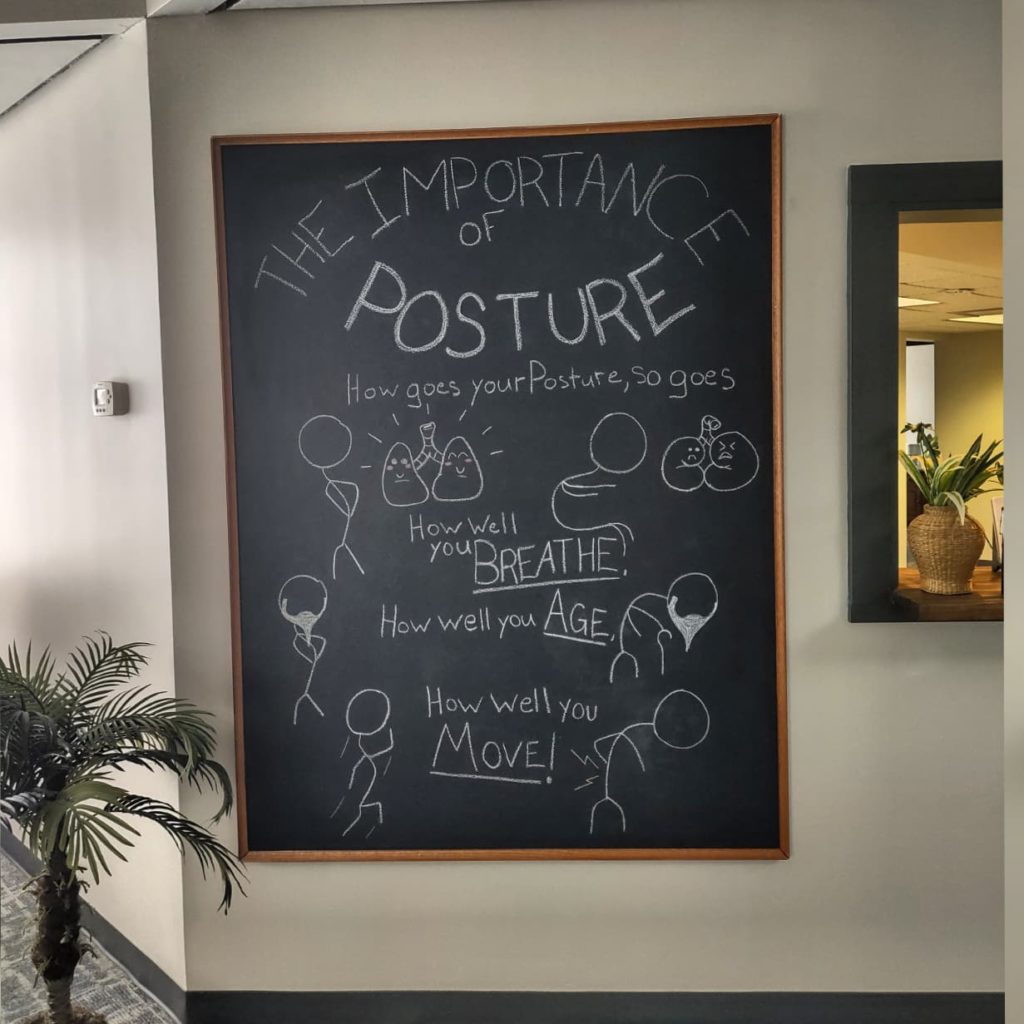 THE IMPORTANCE
OF
POSTURE
How goes your Posture, so goes
How well
you BREATHE,
How well you AGE,
How well you
MOVE!